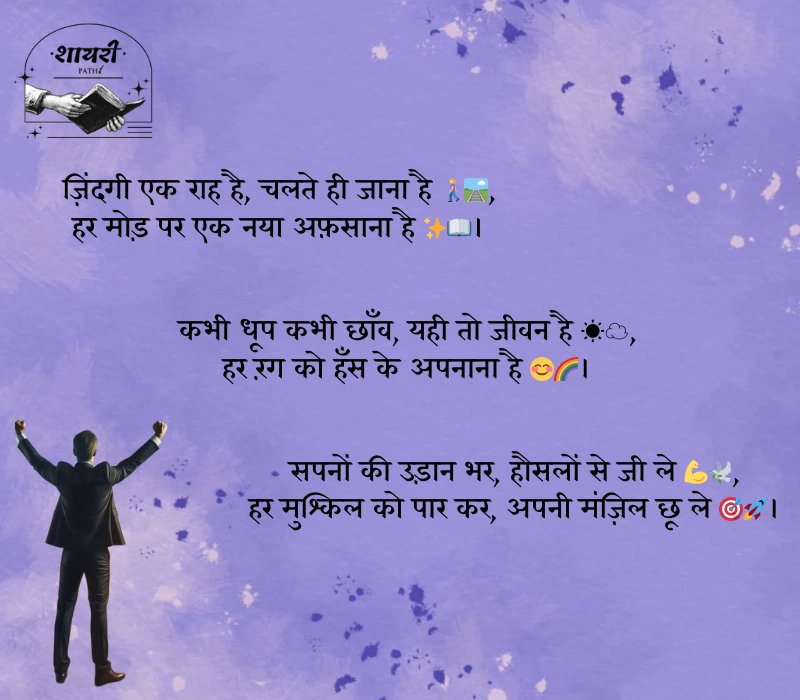 शायरी
PATH
ज़िंदगी एक राह है, चलते ही जाना है 🚶🛤️,
हर मोड़ पर एक नया अफ़साना है ✨📖।
कभी धूप कभी छाँव, यही तो जीवन है ☀☁,
हर रंग को हँस के अपनाना है 😊🌈।
सपनों की उड़ान भर, हौसलों से जी ले 💪🕊️,
हर मुश्किल को पार कर, अपनी मंज़िल छू ले 🎯🚀।